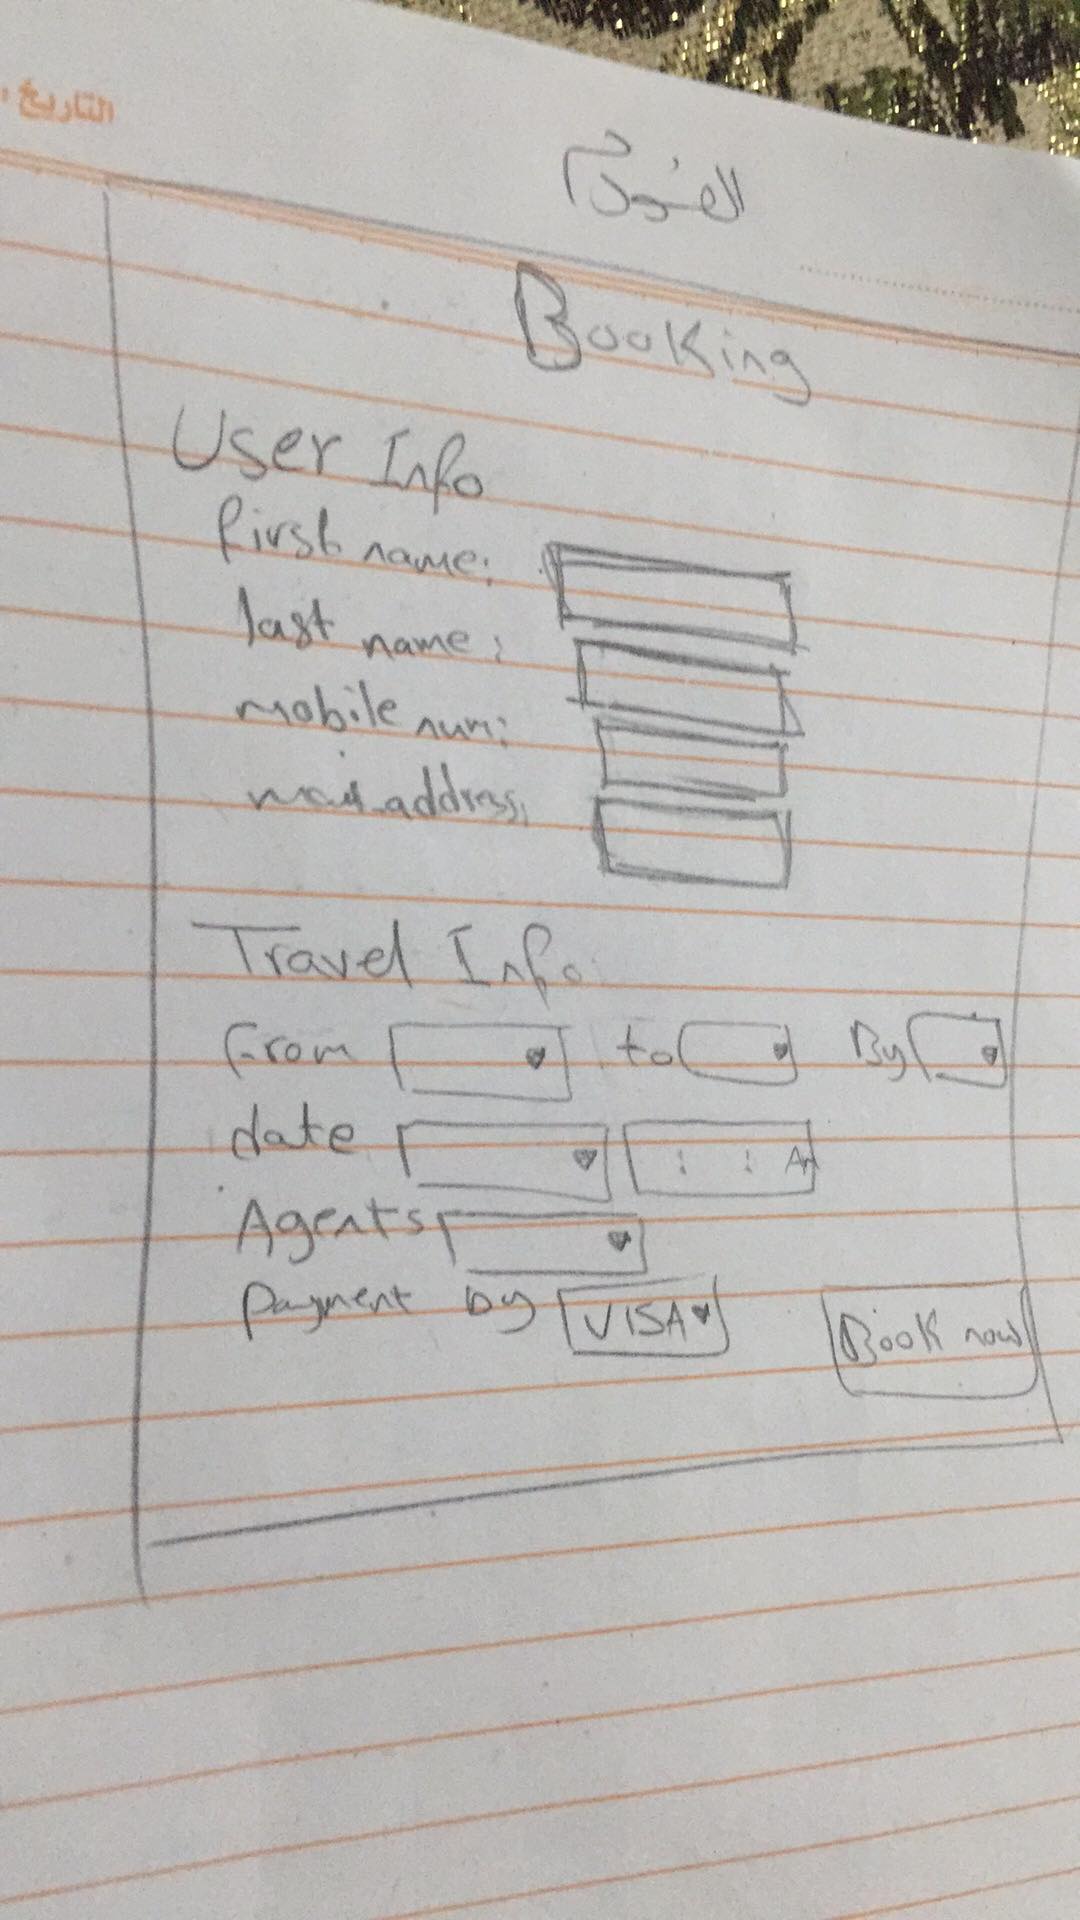 التاريخ
Booking
User Info
first name:
last name:
mobile num:
mail address:
Travel Info
From to By
date : : AM
Agents
Payment by VISA Book now